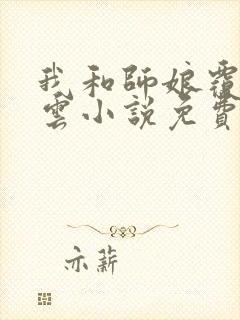 我和師娘覆
雲小說免費
亦薪